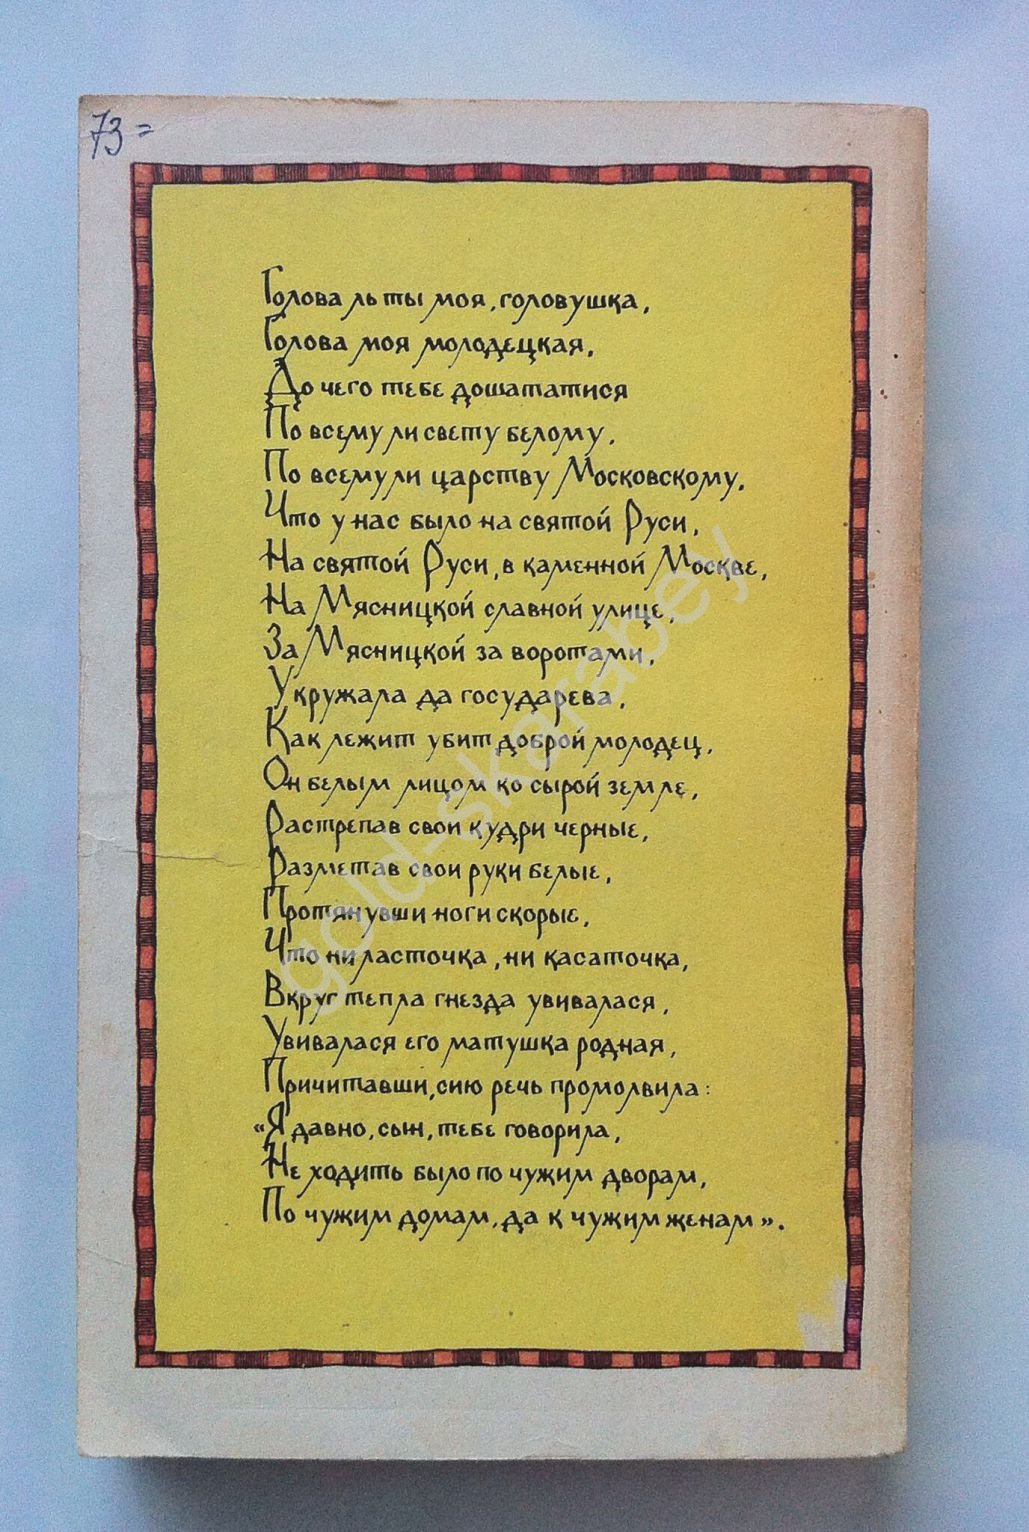 73=
Голова ль ты моя, головушка,
Голова моя молодецкая,
До чего тебе дошататися
По всему ли свету белому,
По всему ли царству Московскому,
Что у нас было на святой Руси,
На святой Руси, в каменной Москве,
На Мясницкой славной улице,
За Мясницкой за воротами,
У кружала да государева,
Как лежит убит доброй молодец,
Он белым лицом ко сырой земле,
Растрепав свои кудри черные,
Разметав свои руки белые,
Протянувши ноги скорые,
Что ни ласточка, ни касаточка,
Вкруг тепла гнезда увивалася,
Увивалася его матушка родная,
Причитавши, сию речь промолвила:
«Я давно, сын, тебе говорила,
Не ходить было по чужим дворам,
По чужим домам, да к чужим женам».
gold-skarabey